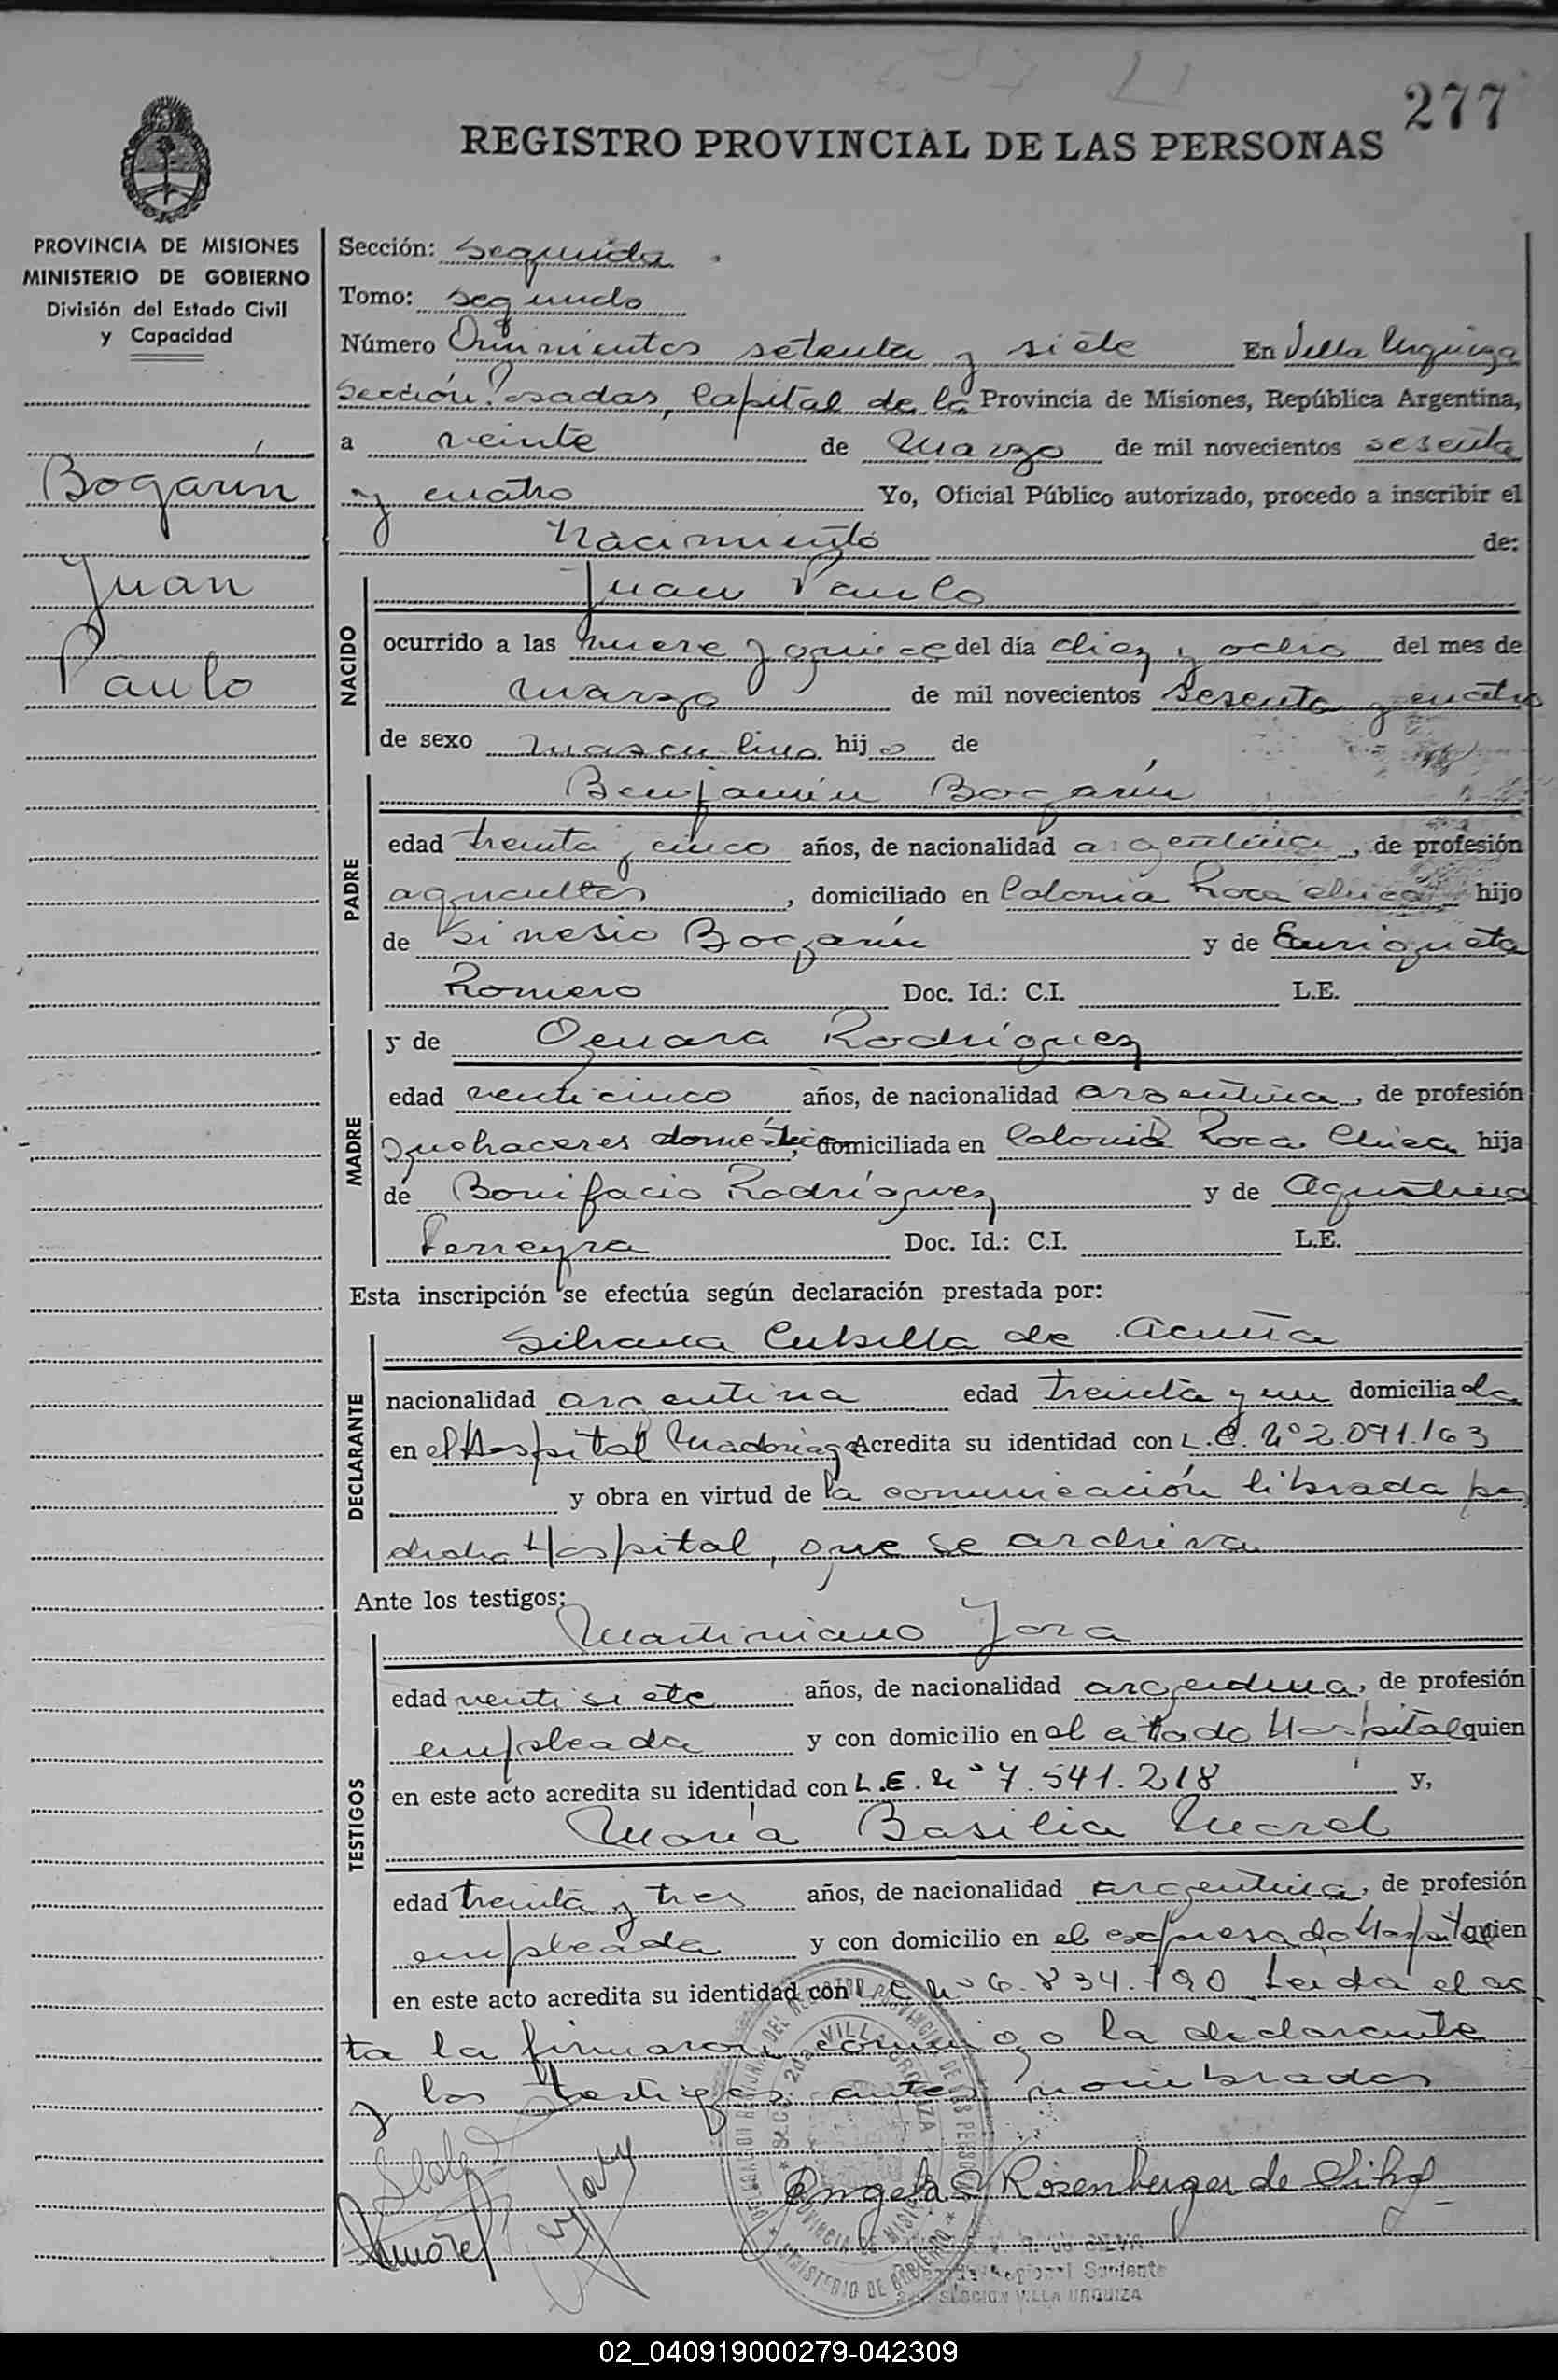 277
REGISTRO PROVINCIAL DE LAS PERSONAS
PROVINCIA DE MISIONES
MINISTERIO DE GOBIERNO
División del Estado Civil
y Capacidad
Bogarín
Juan
Paulo
Sección: Segunda.
Tomo: segundo
Número Quinientos setenta y siete En Villa Urquiza
Sección Posadas, Capital de la Provincia de Misiones, República Argentina,
a veinte de Marzo de mil novecientos sesenta
y cuatro Yo, Oficial Público autorizado, procedo a inscribir el
Nacimiento de:
NACIDO
Juan Paulo
ocurrido a las nueve y quince del día diez y ocho del mes de
marzo de mil novecientos sesenta y cuatro
de sexo masculino hijo de
PADRE
Benjamín Bogarín
edad treinta y cinco años, de nacionalidad argentina, de profesión
agricultor, domiciliado en Colonia Roca Chica hijo
de Sinesio Bogarín y de Enriqueta
Romero Doc. Id.: C.I. L.E.
MADRE
y de Genara Rodríguez
edad venticinco años, de nacionalidad argentina, de profesión
Quehaceres domésticos, domiciliada en Colonia Roca Chica hija
de Bonifacio Rodríguez y de Agustina
Ferreyra Doc. Id.: C.I. L.E.
Esta inscripción se efectúa según declaración prestada por:
DECLARANTE
Silvana Cubilla de Acuña
nacionalidad argentina edad treinta y un domiciliada
en el Hospital Madariaga Acredita su identidad con L.C. Nº 2.091.163
y obra en virtud de la comunicación librada por
dicho Hospital, que se archiva
Ante los testigos:
TESTIGOS
Martiniano Jara
edad venti siete años, de nacionalidad argentina, de profesión
empleada y con domicilio en el citado Hospital quien
en este acto acredita su identidad con L.E. Nº 7.541.218 y,
María Basilia Morel
edad treinta y tres años, de nacionalidad argentina, de profesión
empleada y con domicilio en el expresado Hospital quien
en este acto acredita su identidad con L.C. Nº 6.834.190 Leida el ac
ta la firmaron conmigo la declarante
y los testigos antes nombrados
Angela R. Rosenberger de Silva
BMorel
SECC. 2da VILLA URQUIZA
PROVINCIA DE MISIONES
MINISTERIO DE GOBIERNO
SECCION VILLA URQUIZA
02_040919000279-042309